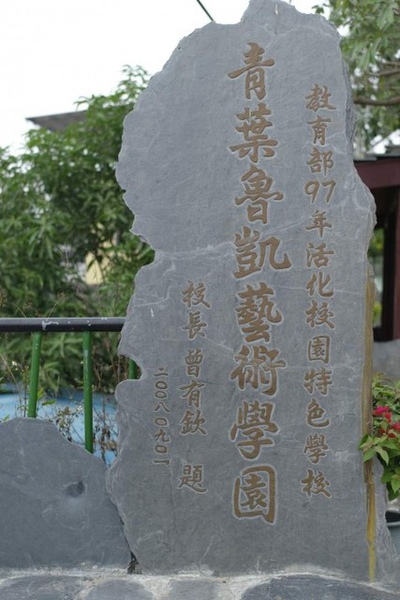 教育部97年活化校園特色學校
青葉魯凱藝術學園
校長 曾有欽 題
二〇〇八〇九〇一